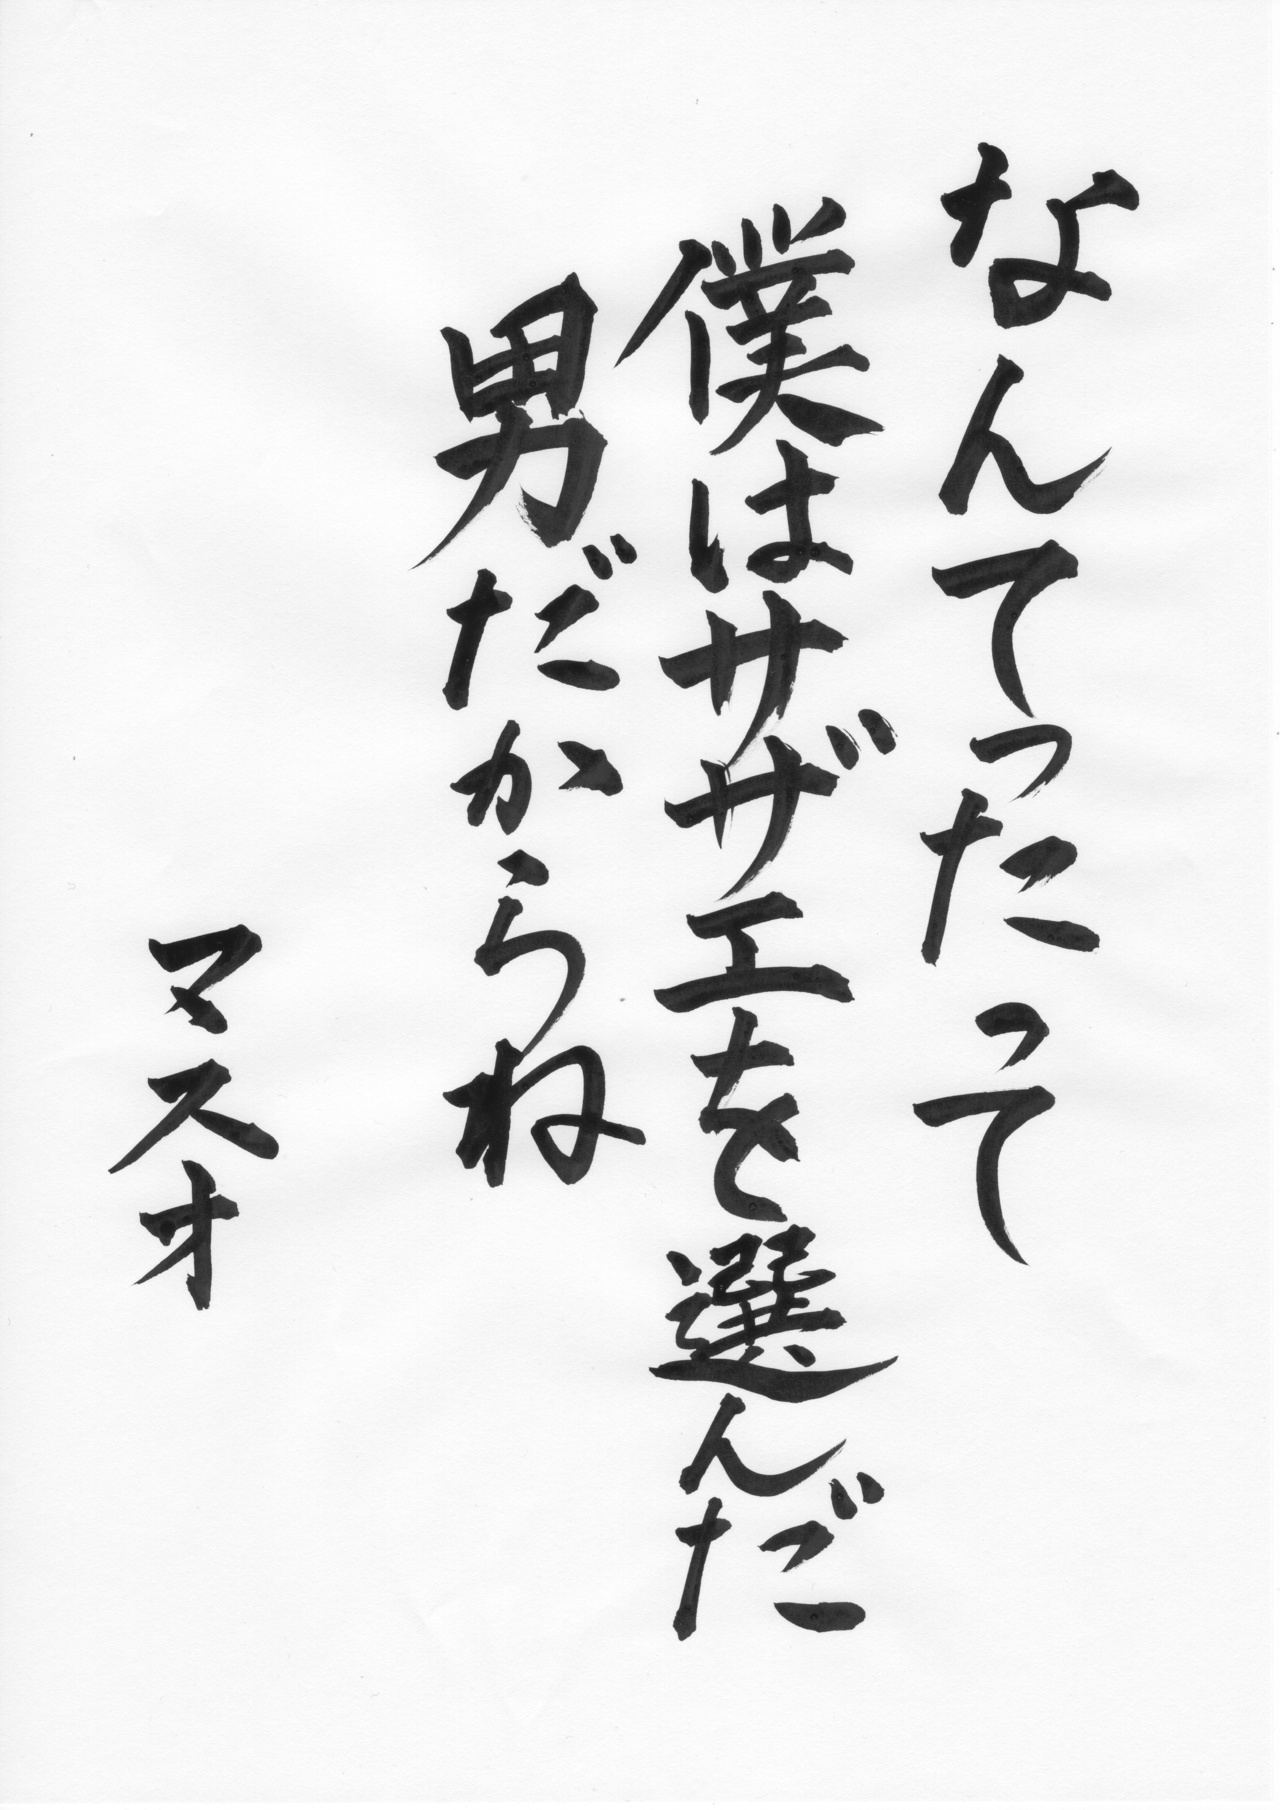 なんてったって
僕はサザエを選んだ
男だからね
マスオ